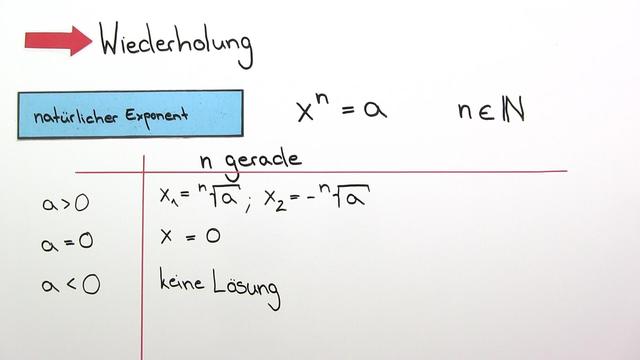 Wiederholung
natürlicher Exponent xⁿ = a n ∈ ℕ
n gerade
a > 0 x₁ = ⁿ√a ; x₂ = -ⁿ√a
a = 0 x = 0
a < 0 keine Lösung